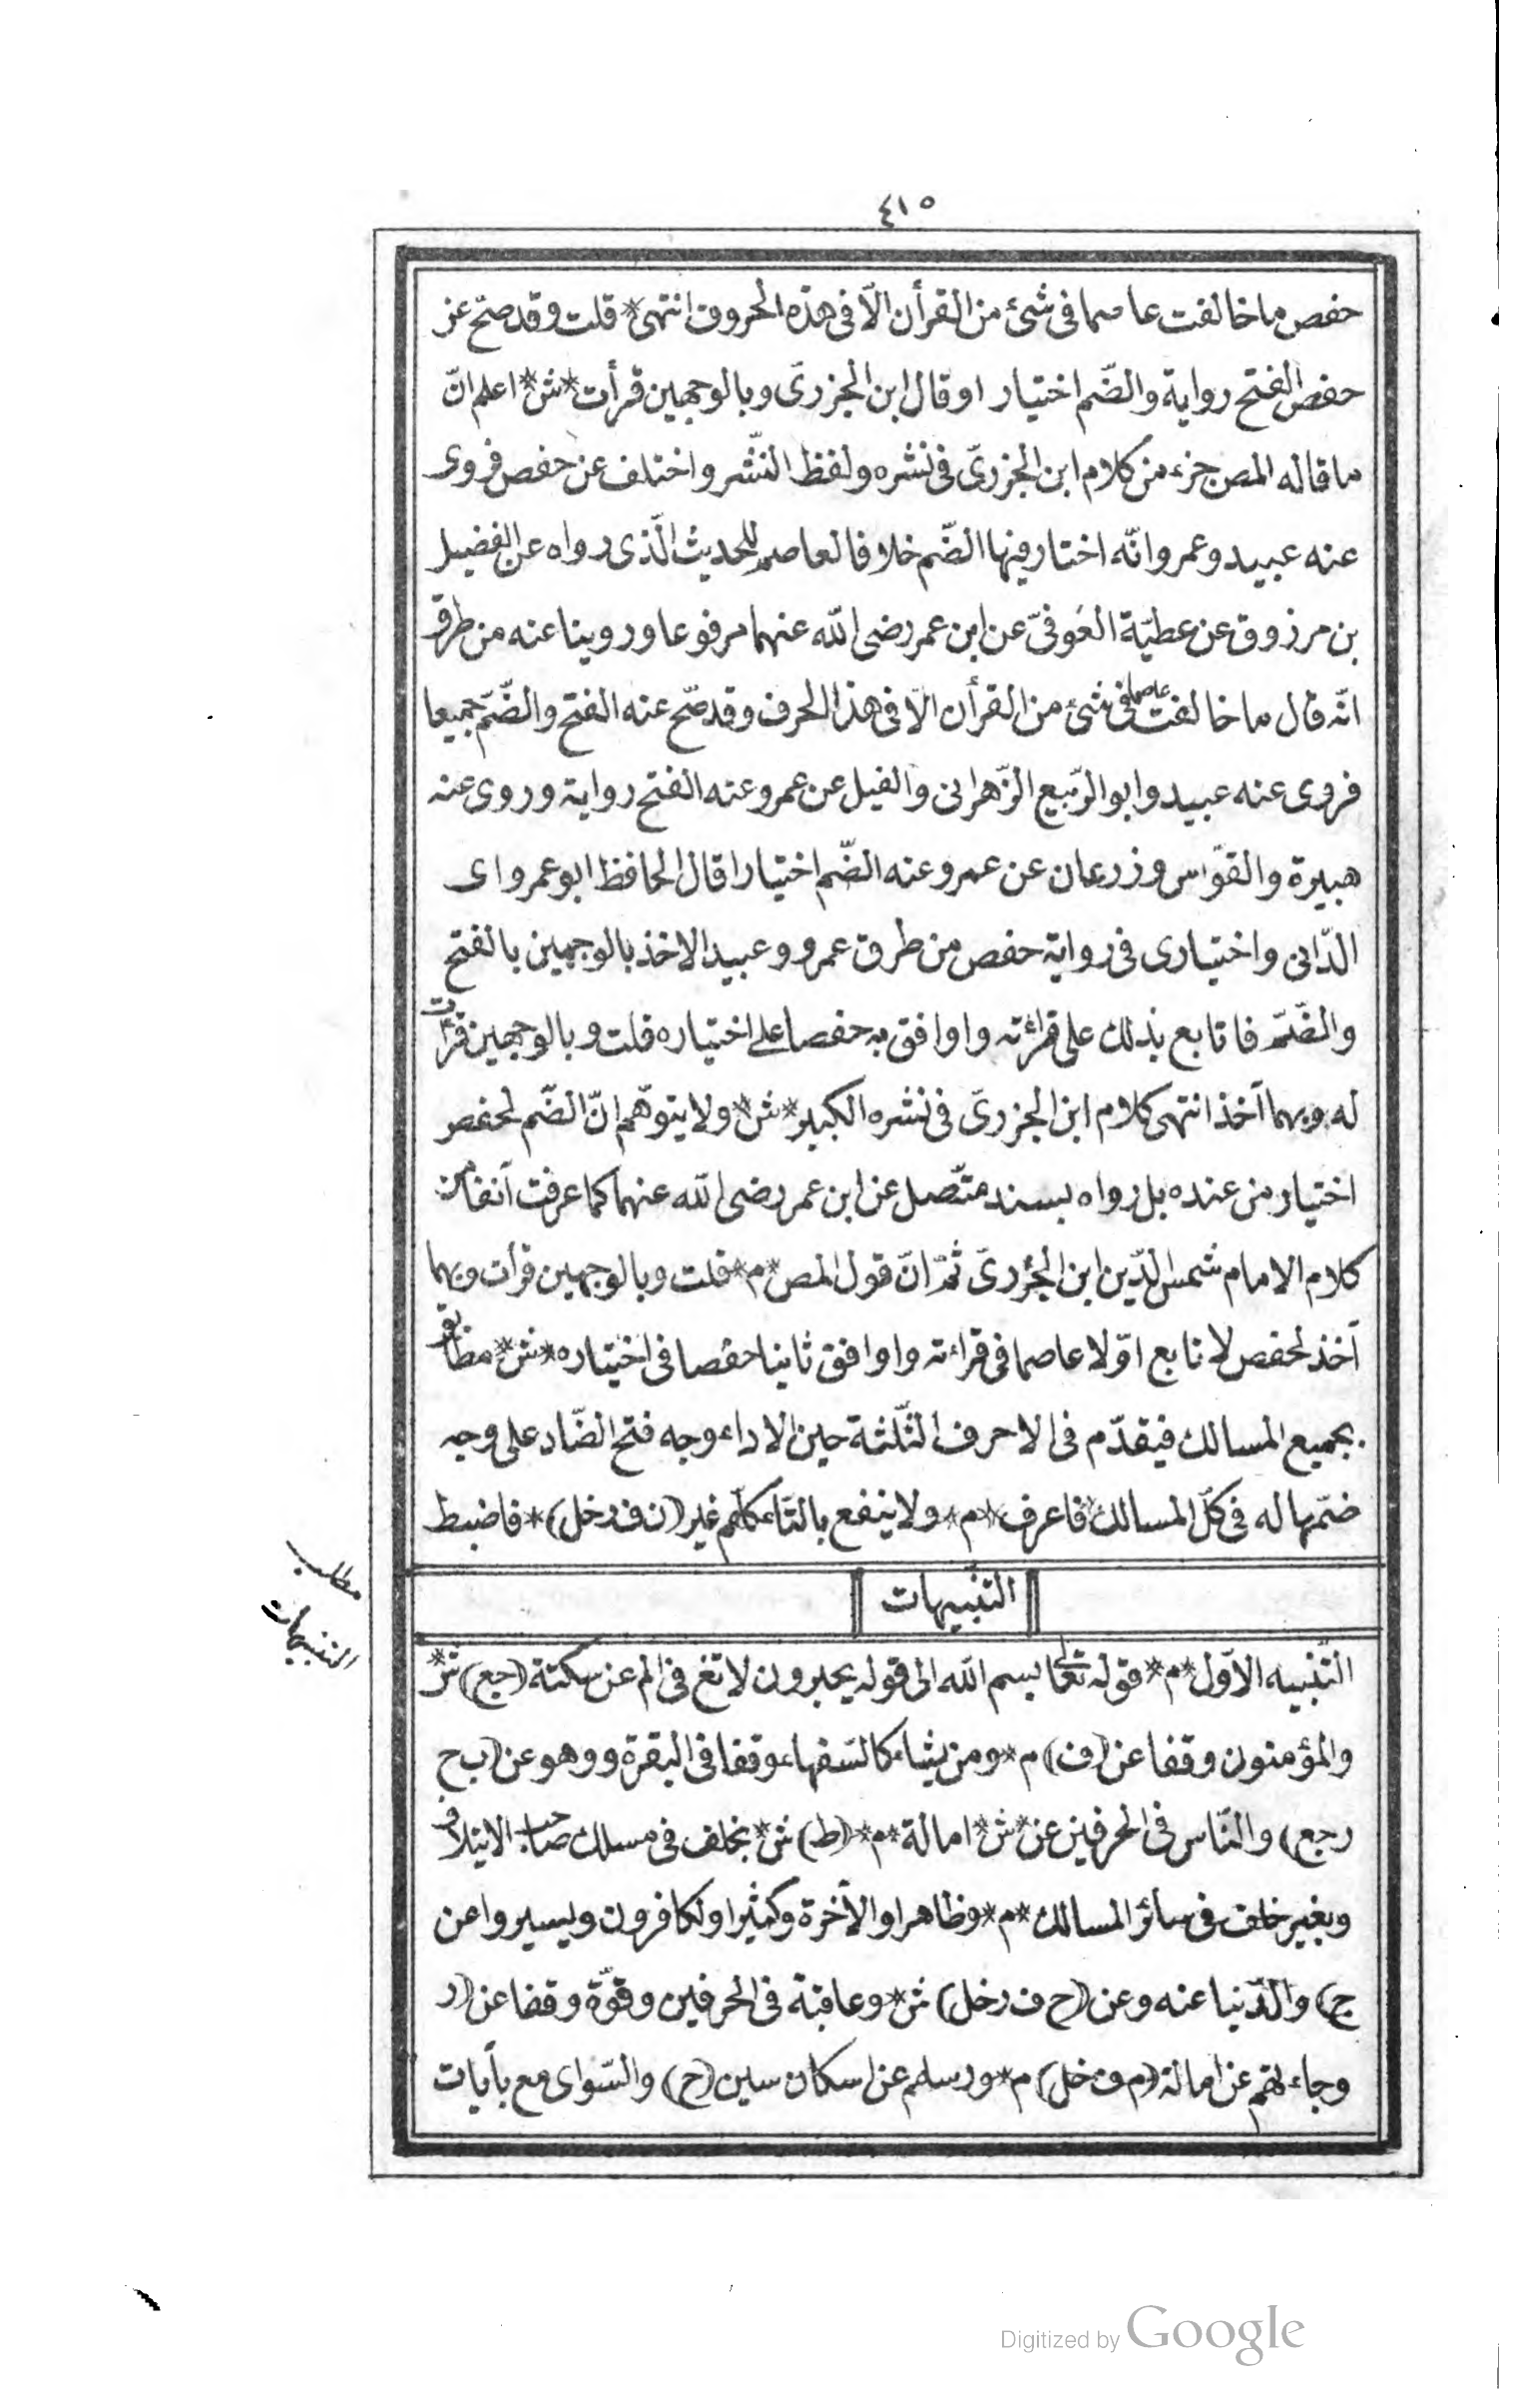 ٤١٥
حفص ما خالفت عاصما فى شئ من القرأن الّا فى هذه الحروف انتهى * قلت وقد صحّ عن
حفص الفتح رواية والضّم اختيار او قال ابن الجزرىّ وبالوجهين قرأت * ش * اعلم انّ
ما قاله المص جزء من كلام ابن الجزرىّ فى نشره ولفظ النّشر واختلف عن حفص فروى
عنه عبيد وعمرو انّه اختار فيها الضّم خلافا لعاصم للحديث الّذى رواه عن الفضيل
بن مرزوق عن عطيّة العَوفىّ عن ابن عمر رضى الله عنهما مرفوعا وروينا عنه من طرق
انّه قال ما خالفت عاصما فى شئ من القرأن الّا فى هذا الحرف وقد صحّ عنه الفتح والضّم جميعا
فروى عنه عبيد وابو الرّبيع الزّهرانى والفيل عن عمرو عنه الفتح رواية وروى عنه
هبيرة والقوّاس وزرعان عن عمرو عنه الضّم اختيارا قال الحافظ ابو عمرو اى
الدّانى واختيارى فى رواية حفص من طرق عمرو وعبيد الاخذ بالوجهين بالفتح
والضّم فاتابع بذلك على قرائته واوافق به حفصا على اختياره قلت وبالوجهين قرأت
له وبهما آخذ انتهى كلام ابن الجزرىّ فى نشره الكبير * ش * ولا يتوهّم انّ الضّم لحفص
اختيار من عنده بل رواه بسند متّصل عن ابن عمر رضى الله عنهما كما عرفت آنفا من
كلام الامام شمس الدّين ابن الجزرىّ ثمّ انّ قول المص * م * قلت وبالوجهين قرأت وبهما
آخذ لحفص لاتابع اوّلا عاصما فى قراءته واوافق ثانيا حفصا فى اختياره * ش * مطابق
بجميع المسالك فيقدّم فى الاحرف الثّلثة حين الاداء وجه فتح الضّاد على وجه
ضمّها له فى كلّ المسالك فاعرف * م * ولا ينفع بالتّاء كلّهم غير (ن ف رخل) * فاضبط
التنبيهات
مطلب
التنبيهات
التّنبيه الاوّل * م * قوله تعالى بسم الله الى قوله يحبرون لا تغ فى الم عن سكتة (جع) ش *
والمؤمنون وقفا عن (ف) م * ومن يشاء كالسّفهاء وقفا فى البقرة ووهو عن (ب ح
رجع) والنّاس فى الحرفين عن * ش * امالة * م * (ط) ش * بخلف فى مسلك صاحب الايتلاف
وبغير خلف فى سائر المسالك * م * وظاهرا والآخرة وكثيرا ولكافرون ويسيروا عن
ج) والدّنيا عنه وعن (ح ف رخل) ش * وعاقبة فى الحرفين وقوّة وقفا عن (ر
وجاءتهم عن امالة (م ف خل) م * ورسلهم عن اسكان سين (ح) والسّواى مع بآيات
Digitized by Google